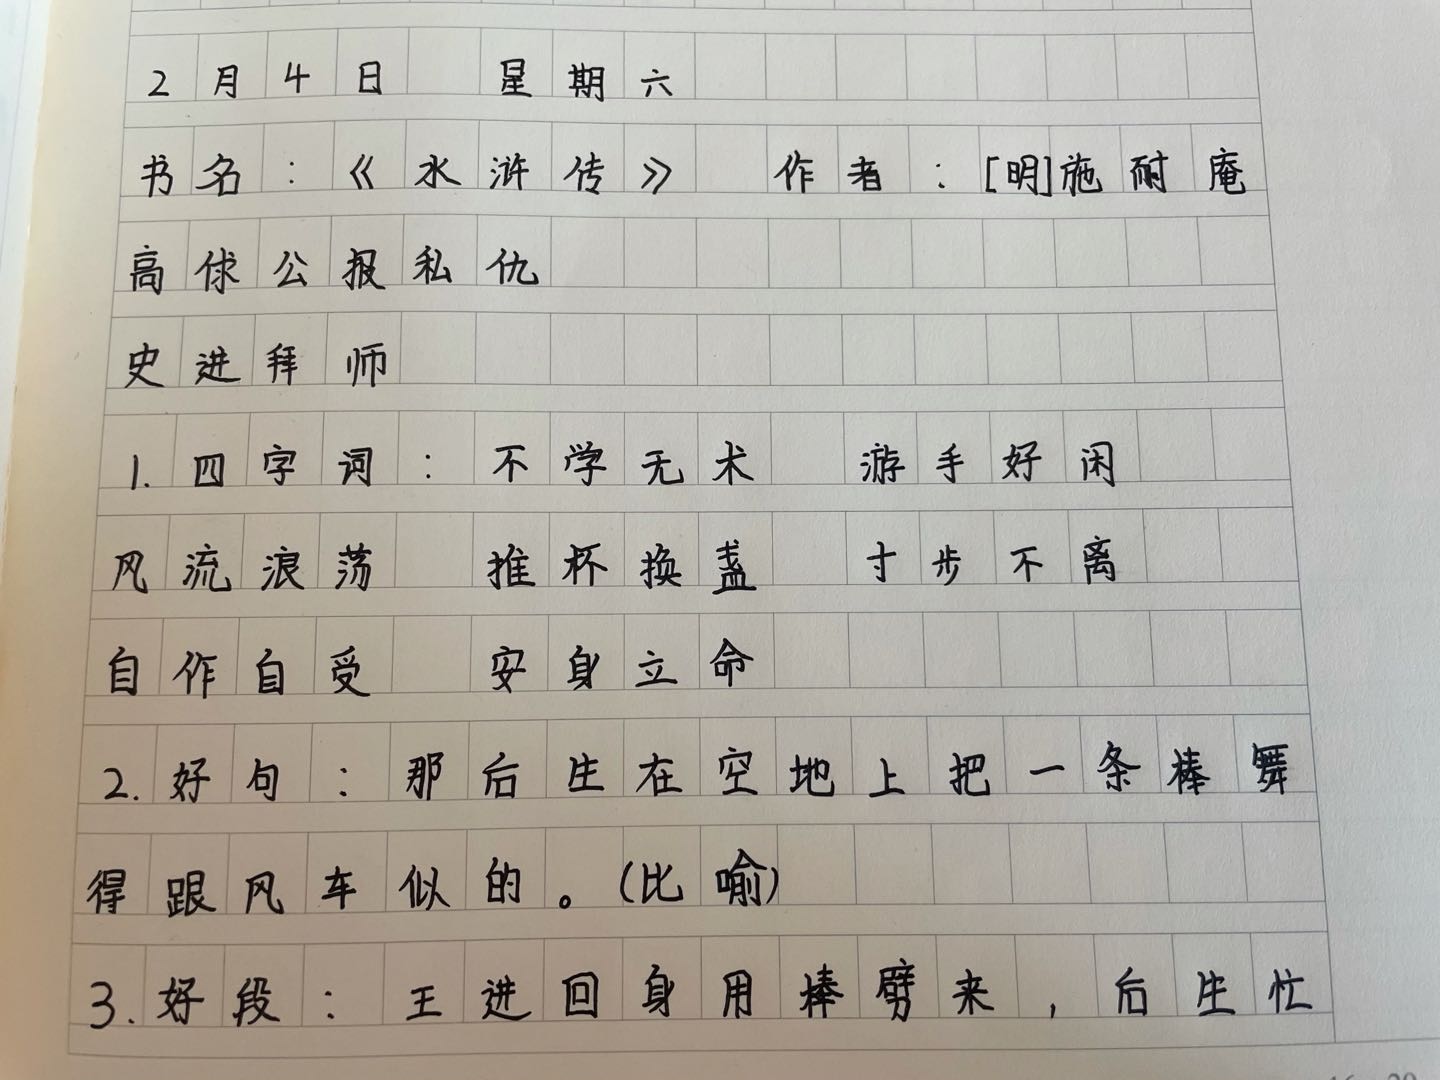 2月4日 星期六
书名：《水浒传》 作者：[明]施耐庵
高俅公报私仇
史进拜师
1.四字词：不学无术 游手好闲
风流浪荡 推杯换盏 寸步不离
自作自受 安身立命
2.好句：那后生在空地上把一条棒舞
得跟风车似的。(比喻)
3.好段：王进回身用棒劈来，后生忙